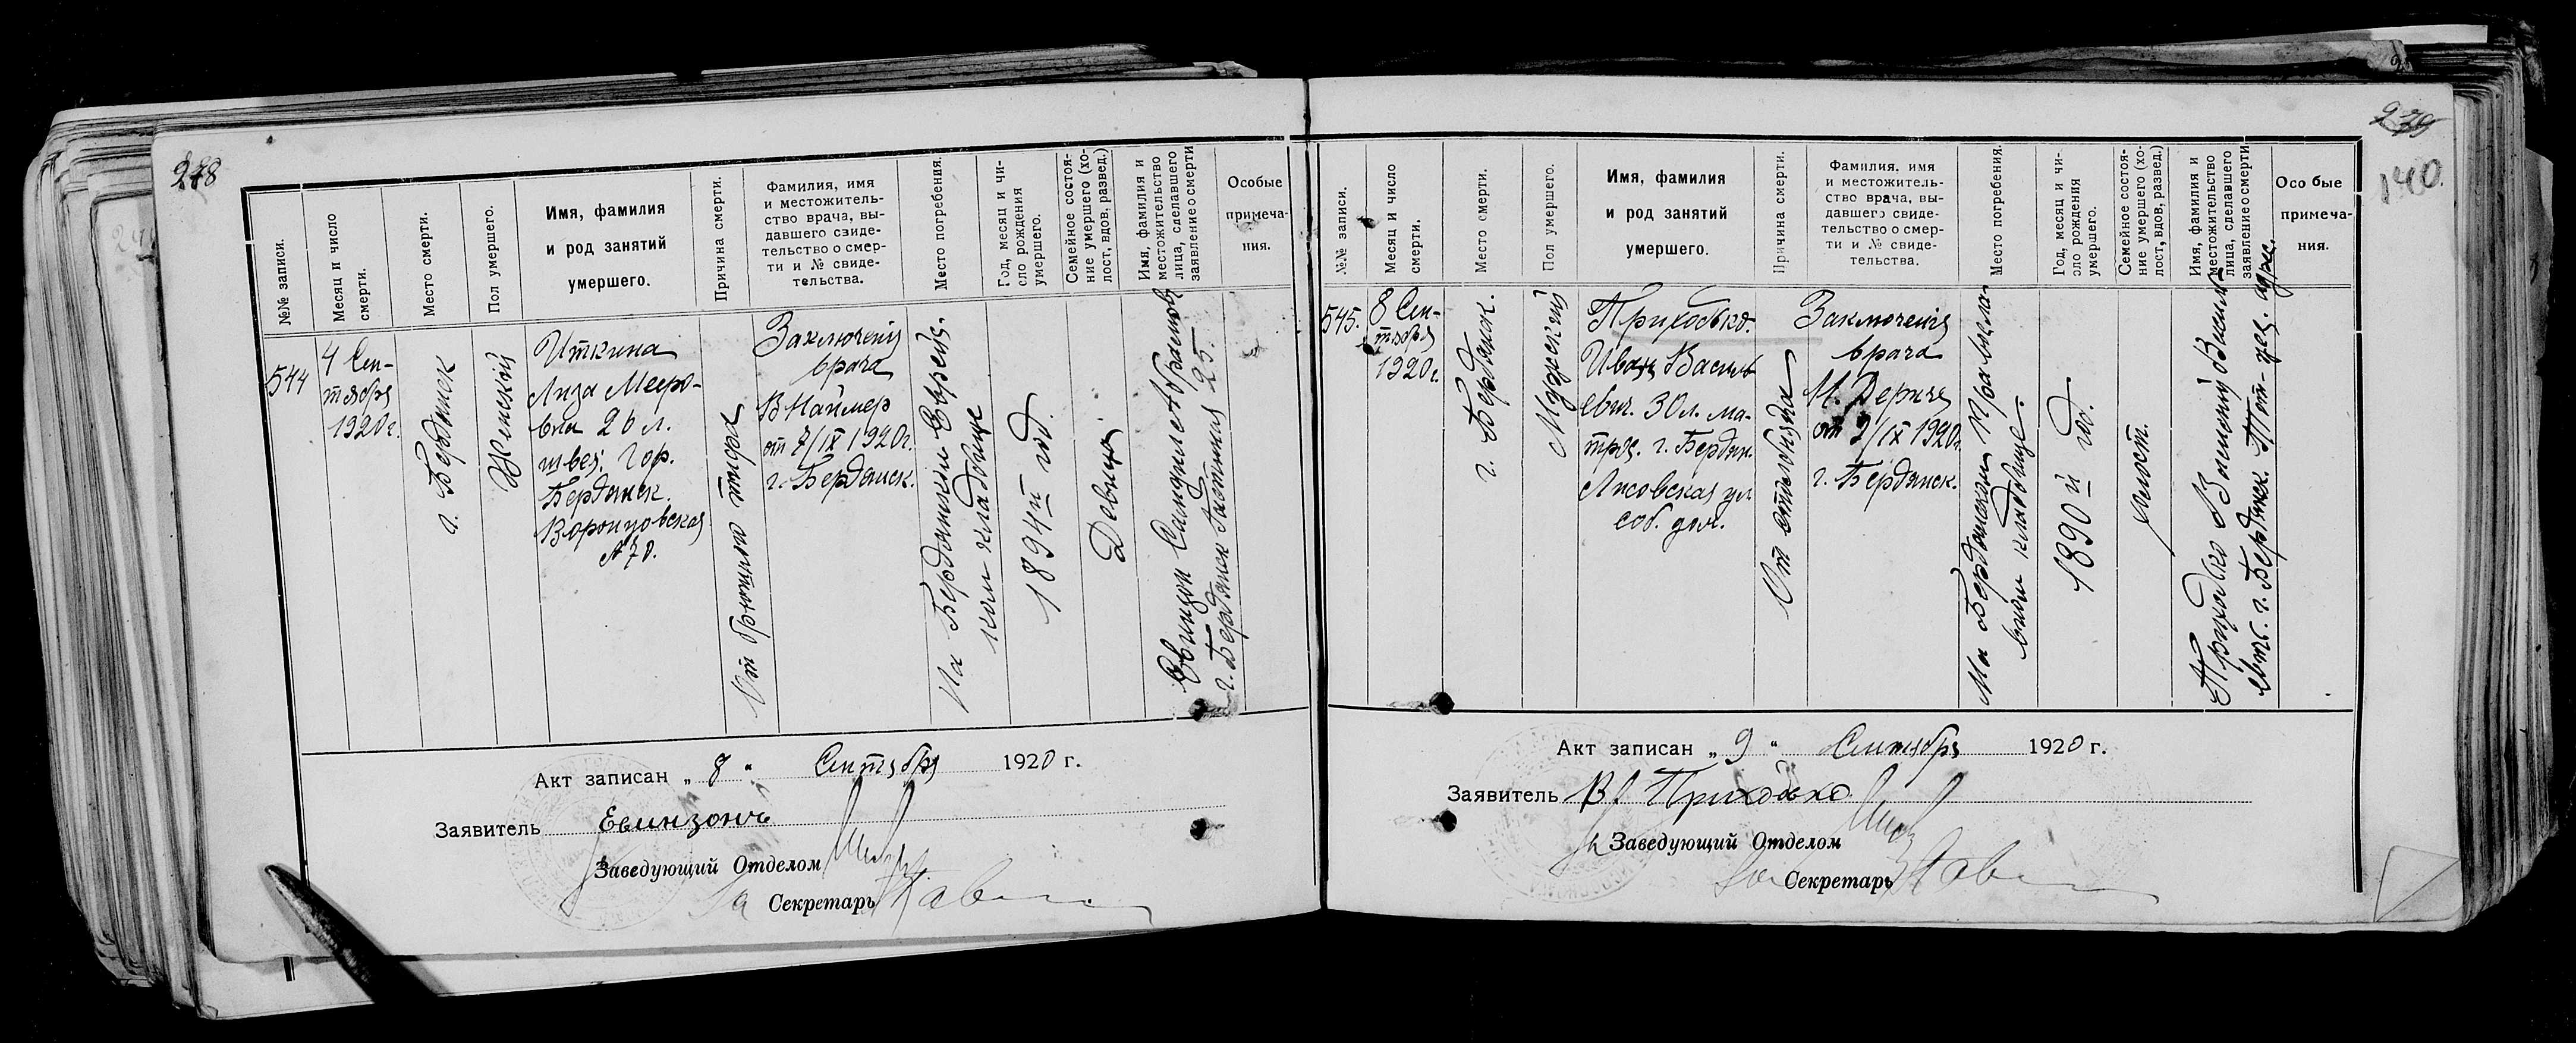 248
№№ записи.
Месяц и число
смерти.
Место смерти.
Пол умершего.
Имя, фамилия
и род занятий
умершего.
Причина смерти.
Фамилия, имя
и местожитель-
ство врача, вы-
давшего свиде-
тельство о смер-
ти и № свиде-
тельства.
Место погребения.
Год, месяц и чи-
сло рождения
умершего.
Семейное состоя-
ние умершего (хо-
лост, вдов, развед.)
Имя, фамилия и
местожительство
лица, сделавшего
заявление о смерти
Особые
примеча-
ния.
544
4 Сен-
тября
1920 г.
г. Бердянск
Женский
Иткина
Лиза Мееро-
вна 26 л.
швея. Гор.
Бердянск.
Воронцовская
№ 70.
От брюшного тифа
Заключения
врача
В Наймер
от 7/IX 1920 г.
г. Бердянск.
На Бердянском Еврейс-
ком кладбище
1894 й год.
Девица
Евинзон Самуил Абрамов
г. Бердянск 25.
Акт записан „ 8 " Сентября 1920 г.
Заявитель Евинзонъ
Заведующий Отделом
За Секретарь
239
140.
№№ записи.
Месяц и число
смерти.
Место смерти.
Пол умершего.
Имя, фамилия
и род занятий
умершего.
Причина смерти.
Фамилия, имя
и местожитель-
ство врача, вы-
давшего свиде-
тельство о смер-
ти и № свиде-
тельства.
Место погребения.
Год, месяц и чи-
сло рождения
умершего.
Семейное состоя-
ние умершего (хо-
лост, вдов, развед.)
Имя, фамилия и
местожительство
лица, сделавшего
заявление о смерти
Особые
примеча-
ния.
545.
8 Сен-
тября
1920 г.
г. Бердянск.
Мужской
Приходько.
Иван Василь
евич. 30 л. ма-
трос. г. Бердян.
Лисовская ул
соб. дом.
От столбняка
Заключения
врача
от 9/IX 1920 г.
г. Бердянск.
На Бердянском Правосла-
вном кладбище.
1890 й год.
холост.
Приходько Василий
г. Бердянск.
Акт записан „ 9 " Сентября 1920 г.
Заявитель В Приходько
Заведующий Отделом
За Секретарь